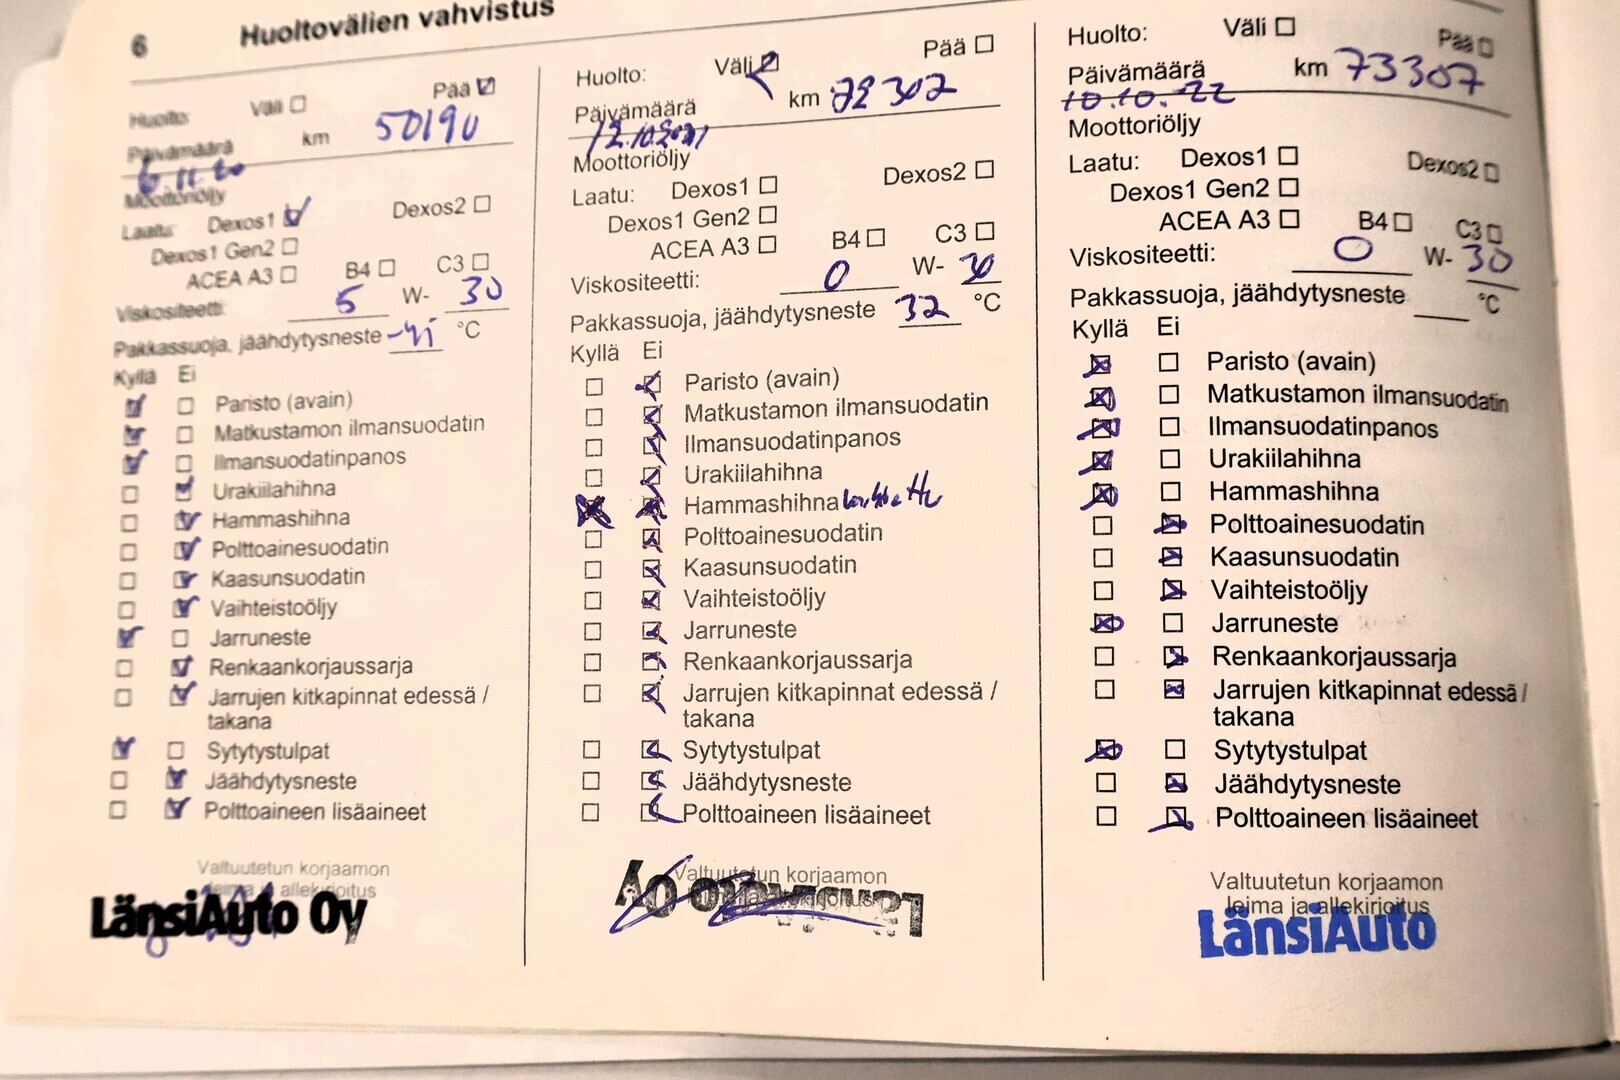 6 Huoltovälien vahvistus
Huolto: Väli Pää
Päivämäärä km 50190
6.11.20
Moottoriöljy
Laatu: Dexos1 Dexos2
Dexos1 Gen2
ACEA A3 B4 C3
Viskositeetti: 5 W- 30
Pakkassuoja, jäähdytysneste °C
Kyllä Ei
Paristo (avain)
Matkustamon ilmansuodatin
Ilmansuodatinpanos
Urakiilahihna
Hammashihna
Polttoainesuodatin
Kaasunsuodatin
Vaihteistoöljy
Jarruneste
Renkaankorjaussarja
Jarrujen kitkapinnat edessä /
takana
Sytytystulpat
Jäähdytysneste
Polttoaineen lisäaineet
Valtuutetun korjaamon
leima ja allekirjoitus
LänsiAuto Oy
Huolto: Väli Pää
Päivämäärä km 302
12.10.2021
Moottoriöljy
Laatu: Dexos1 Dexos2
Dexos1 Gen2
ACEA A3 B4 C3
Viskositeetti: 0 W- 30
Pakkassuoja, jäähdytysneste 32 °C
Kyllä Ei
Paristo (avain)
Matkustamon ilmansuodatin
Ilmansuodatinpanos
Urakiilahihna
Hammashihna
Polttoainesuodatin
Kaasunsuodatin
Vaihteistoöljy
Jarruneste
Renkaankorjaussarja
Jarrujen kitkapinnat edessä /
takana
Sytytystulpat
Jäähdytysneste
Polttoaineen lisäaineet
Valtuutetun korjaamon
leima ja allekirjoitus
LänsiAuto Oy
Huolto: Väli Pää
Päivämäärä km 73307
10.10.22
Moottoriöljy
Laatu: Dexos1 Dexos2
Dexos1 Gen2
ACEA A3 B4 C3
Viskositeetti: 0 W- 30
Pakkassuoja, jäähdytysneste °C
Kyllä Ei
Paristo (avain)
Matkustamon ilmansuodatin
Ilmansuodatinpanos
Urakiilahihna
Hammashihna
Polttoainesuodatin
Kaasunsuodatin
Vaihteistoöljy
Jarruneste
Renkaankorjaussarja
Jarrujen kitkapinnat edessä /
takana
Sytytystulpat
Jäähdytysneste
Polttoaineen lisäaineet
Valtuutetun korjaamon
leima ja allekirjoitus
LänsiAuto